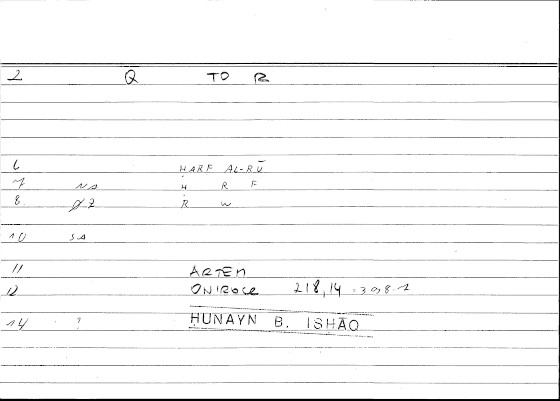 2 Q TO R
6 ḤARF AL-RŪ
7 NA Ḥ R F
8 Ø2 R W
10 SA
11 ARTEM
12 ONIROCR 218,14 = 398.1
14 ? ḤUNAYN B. ISḤĀQ